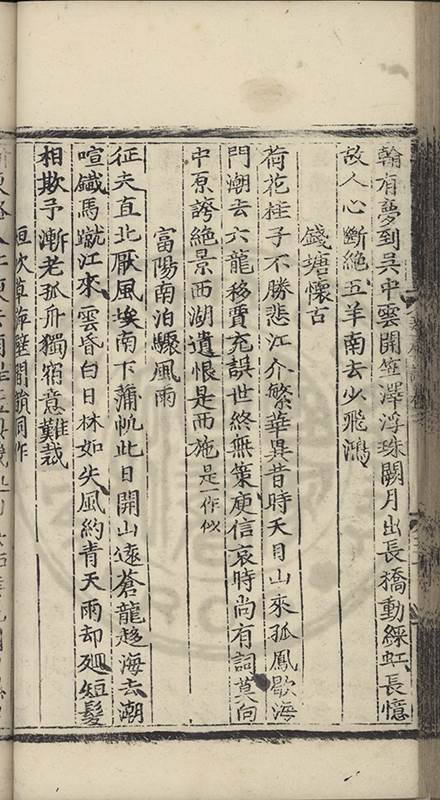 翰有夢到吳中雲開笠澤浮珠闕月出長橋動綵虹長憶
故人心斷絕五羊南去少飛鴻
錢塘懷古
荷花桂子不勝悲江介繁華異昔時天目山來孤鳳歇海
門潮去六龍移賈充誤世終無策庾信哀時尚有詞莫向
中原誇絕景西湖遺恨是西施是一作似
富陽南泊驟風雨
征夫直北厭風埃南下蒲帆此日開山遠蒼龍趍海去潮
喧鐵馬蹴江來雲昏白日林如失風約青天雨却廻短髮
相欺予漸老孤舟獨宿意難裁